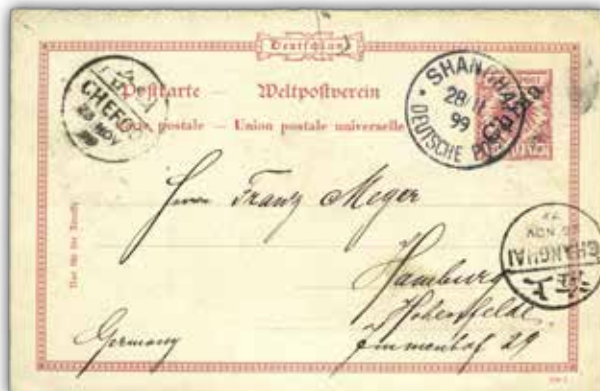 Deutschland
Postkarte — Weltpostverein
Carte postale — Union postale universelle
CHEFOO
23 NOV
99
SHANGHAI
28/11
99
DEUTSCHE POST
China
Herrn Franz Meyer
Hamburg
Hohenfelde
Immenhof 29
Germany
NOV
SHANGHAI
上海